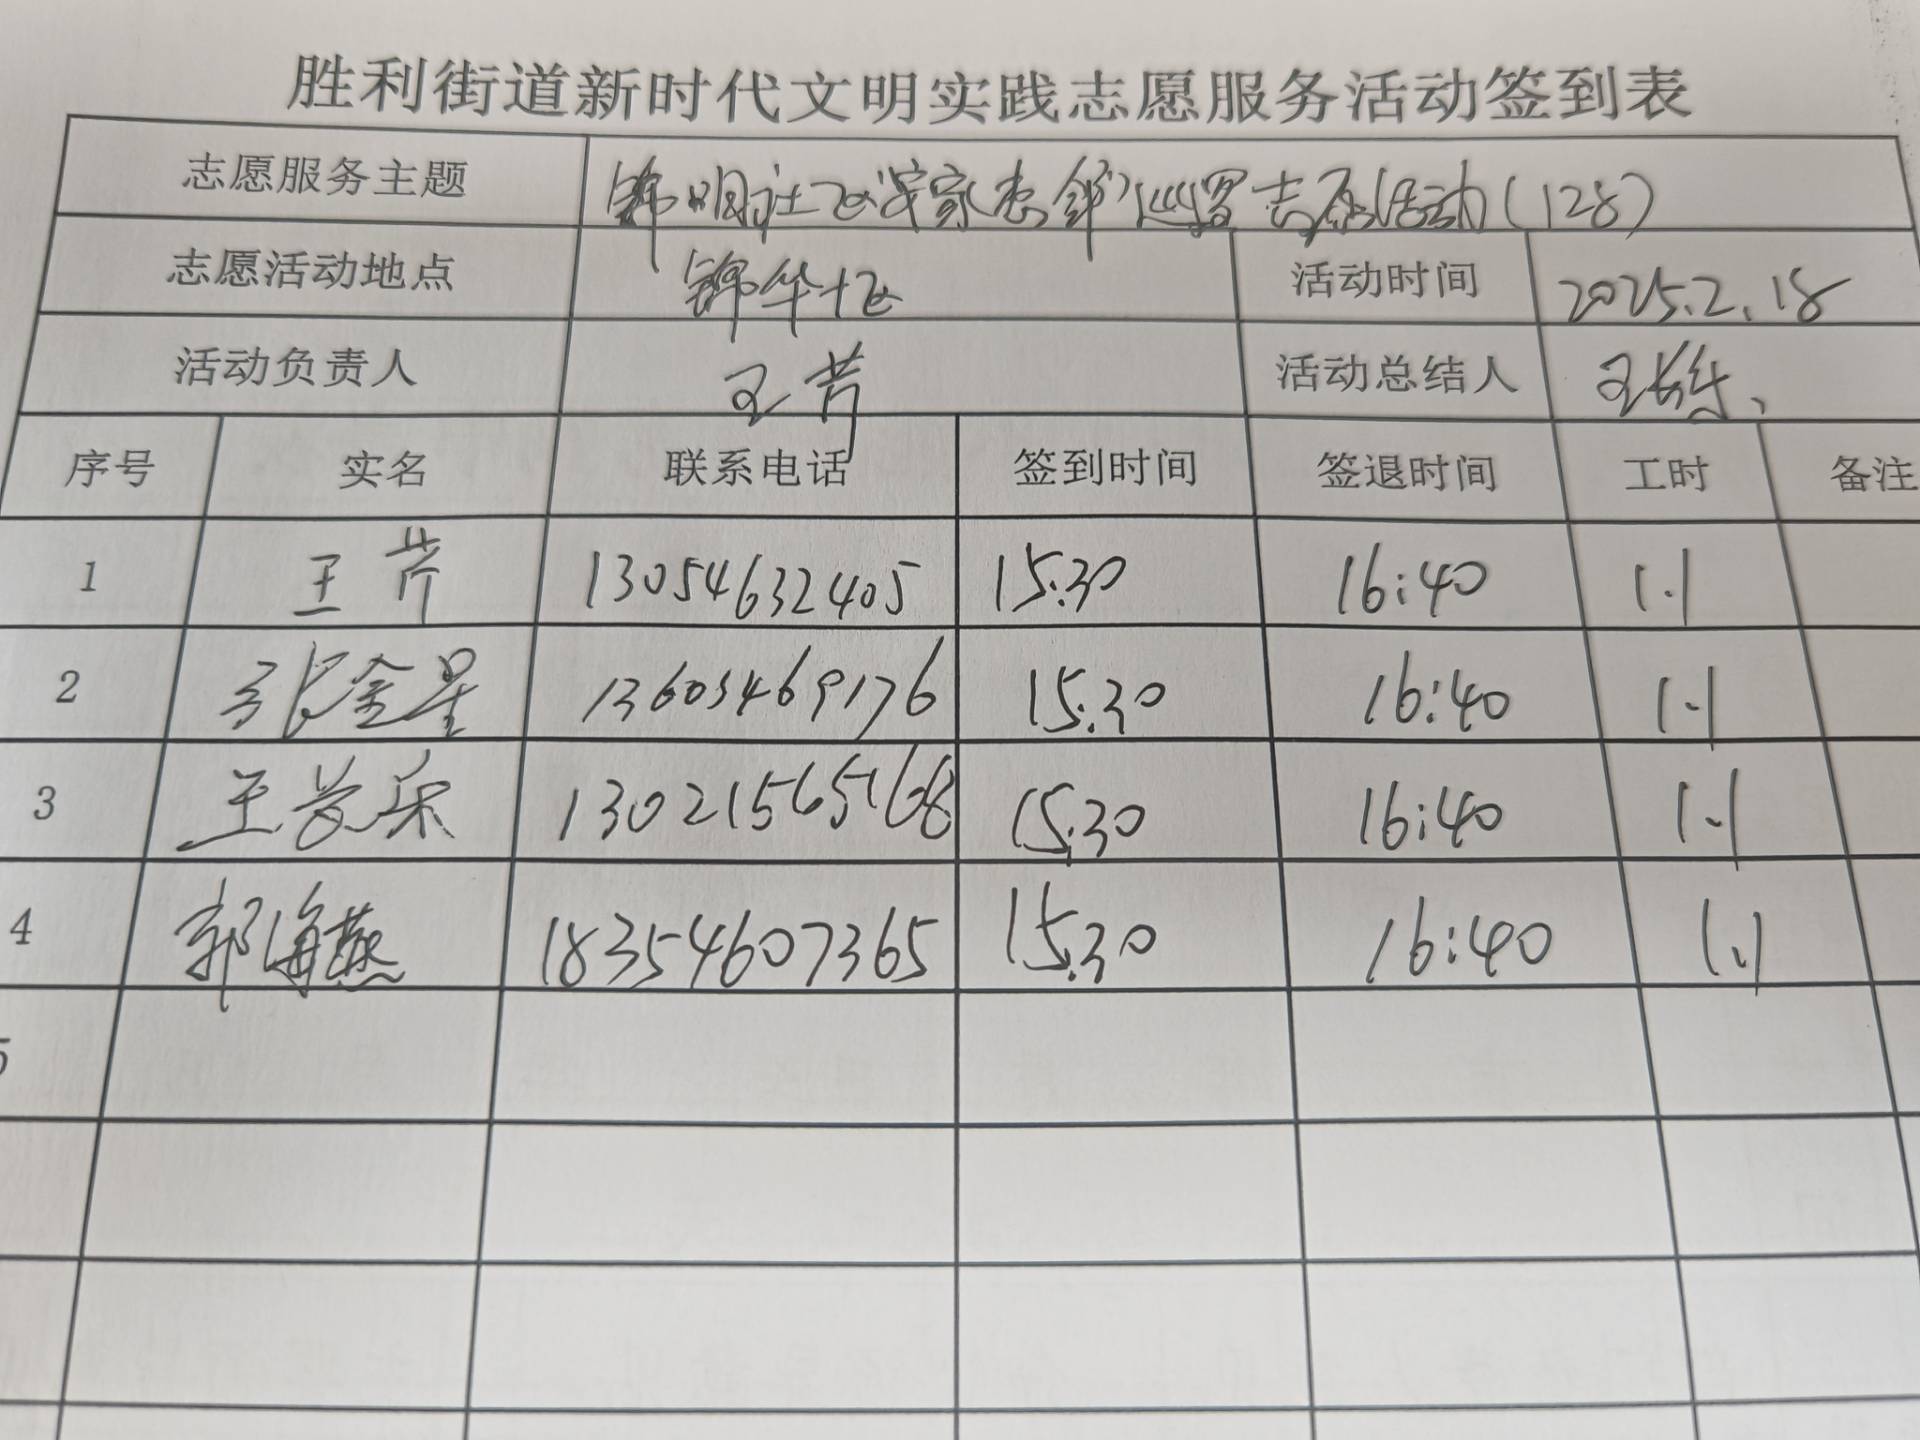 胜利街道新时代文明实践志愿服务活动签到表
志愿服务主题 锦明社区 志愿活动(128)
志愿活动地点 锦华十区 活动时间 2025.2.18
活动负责人 王芹 活动总结人 王
序号 实名 联系电话 签到时间 签退时间 工时 备注
1 王芹 13054632405 15:30 16:40 1.1
2 张金星 13605469176 15:30 16:40 1.1
3 王 乐 13021565168 15:30 16:40 1.1
4 郭海燕 18354607365 15:30 16:40 1.1
5